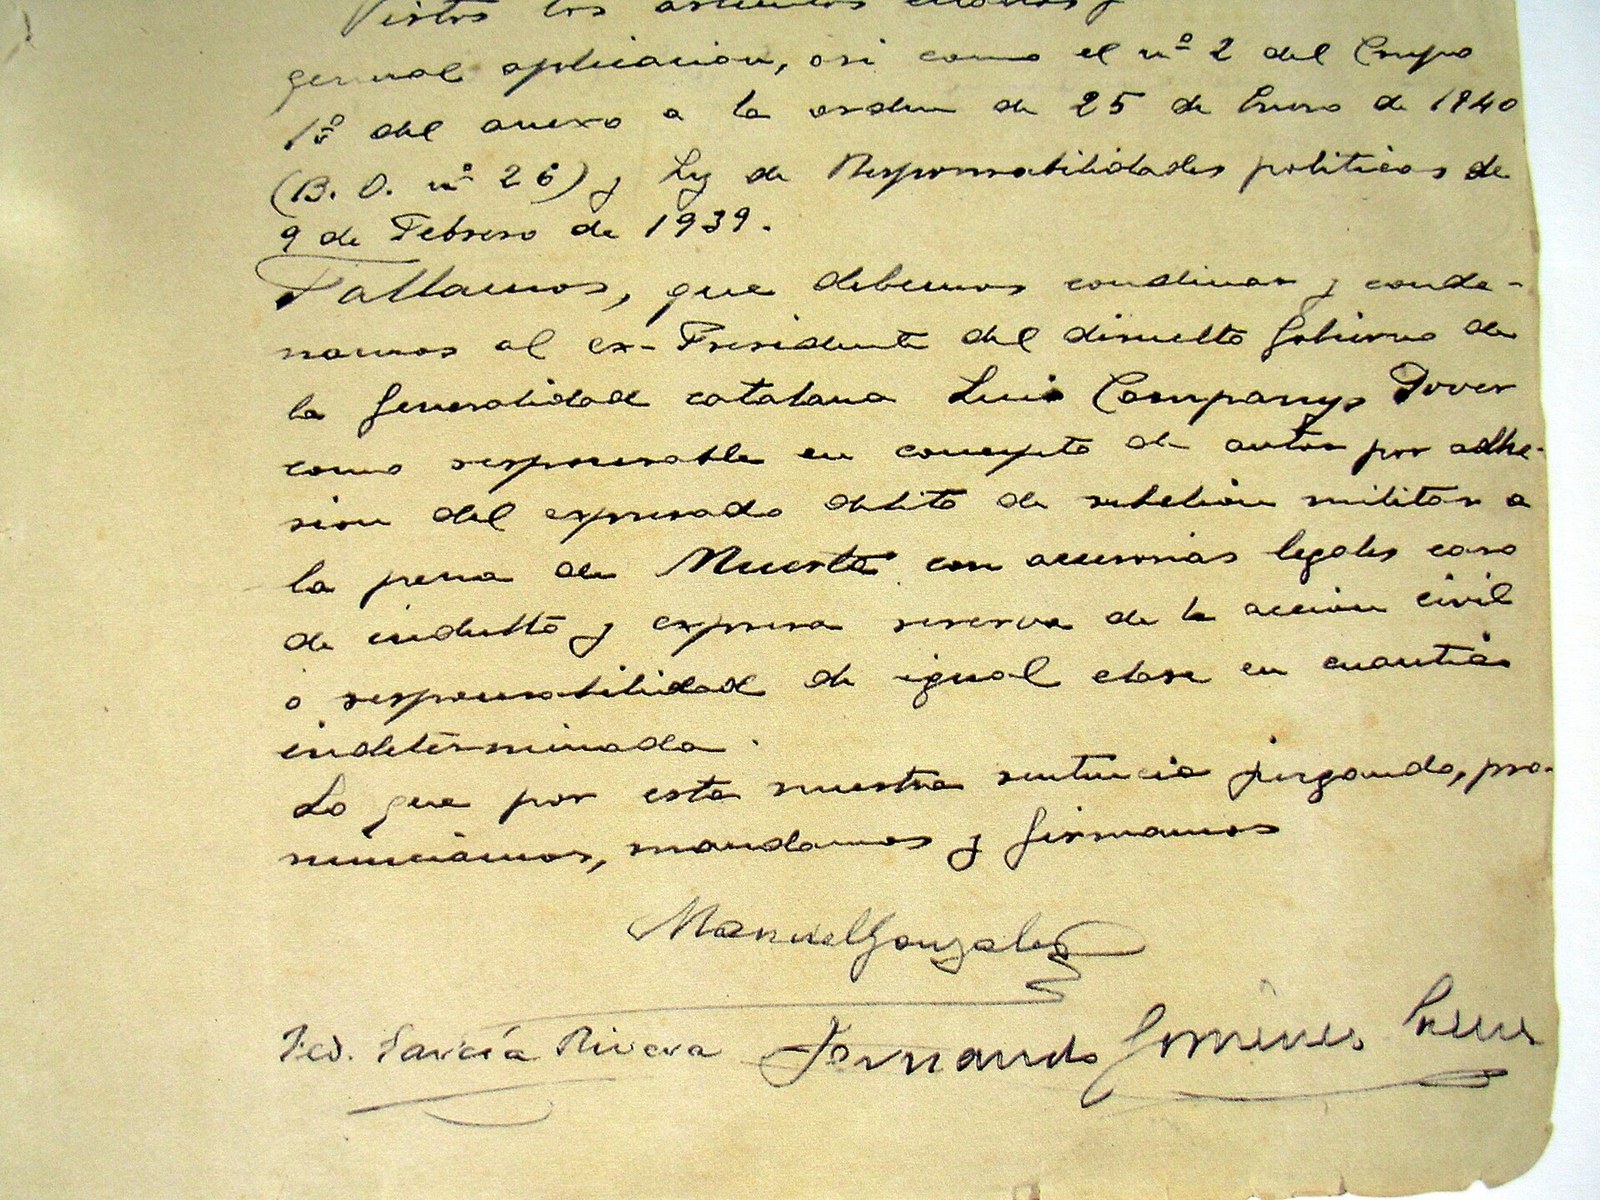 Vistos los artículos citados y
general aplicacion, asi como el nº 2 del Grupo
1º del anexo a la orden de 25 de Enero de 1940
(B. O. nº 26) y Ley de Responsabilidades politicas de
9 de Febrero de 1939.
Fallamos, que debemos condenar y conde-
namos al ex-Presidente del disuelto Gobierno de
la Generalidad catalana Luis Companys Jover
como responsable en concepto de autor por adhe-
sion del expresado delito de rebelión militar a
la pena de Muerte con accesorias legales caso
de indulto y expresa reserva de la acción civil
o responsabilidad de igual clase en cuantia
indeterminada.
Lo que por esta nuestra sentencia juzgando, pro-
nunciamos, mandamos y firmamos
Manuel Gonzalez
Fed. García Rivera Fernando Gimenez